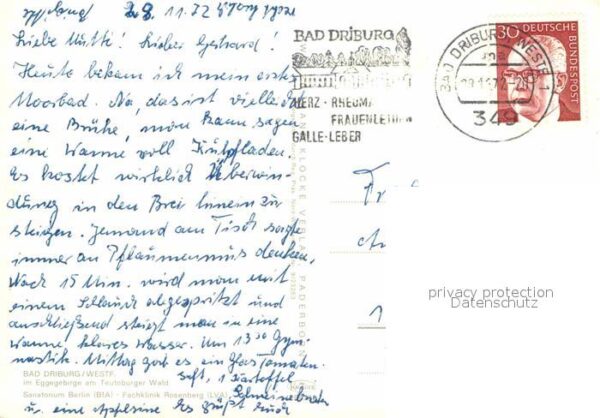 28.11.72
Liebe Mutti! Lieber Gerhard!
Heute bekam ich mein erstes
Moorbad. Na, das ist vielleicht
eine Brühe, man kann sagen
eine Wanne voll Kuhfladen.
Es kostet wirklich Überwin-
dung in den Brei hinein zu
steigen. Jemand am Tisch sagte
immer an Pflaumenmus denken.
Nach 15 Min. wird man mit
einem Schlauch abgespritzt und
anschließend steigt man in eine
Wanne klares Wasser. Um 13³⁰ Gym-
nastik. Mittag gab es ein Glas Tomaten-
saft, 1 Kartoffel
Schweinebraten
u. eine Apfelsine Es grüßt Euch
BAD DRIBURG/WESTF.
im Eggegebirge am Teutoburger Wald
Sanatorium Berlin (BfA) - Fachklinik Rosenberg (LVA)
KLOCKE VERLAG PADERBORN
BAD DRIBURG
HERZ · RHEUMA
FRAUENLEIDEN
GALLE · LEBER
BAD DRIBURG WESTF
349
30
DEUTSCHE
BUNDESPOST
privacy protection
Datenschutz